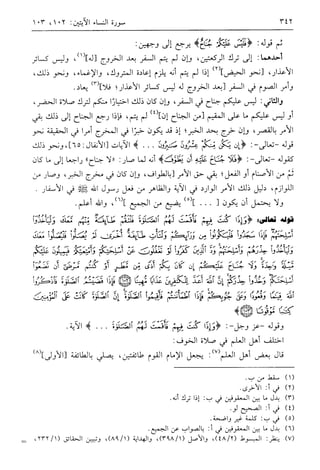 ٣٤٢
سورة النساء الآيتين: ١٠٢، ١٠٣
ثم قوله: ﴿فَلَيْسَ عَلَيْكُمْ جُنَاحٌ﴾ يرجع إلى وجهين:
أحدهما: إلى ترك الركعتين، وإن لم يتم السفر بعد الخروج [له](١)، وليس كسائر
الأعذار، [نحو الحيض](٢) إذا لم يتم أنه يلزم إعادة المتروك، والإغماء، ونحو ذلك،
وأمر الصوم في السفر [بعد الخروج له ليس كسائر الأعذار؛ فلا](٣) يعاد.
والثاني: ليس عليكم جناح في السفر، وإن كان ذلك اختيارًا منكم لترك صلاة الحضر،
أو ليس عليكم ما على المقيم [من الجناح إن](٤) لم يتم، فإذا رفع الجناح إلى ذلك بقي
الأمر بالقصر، وإن خرج بحد الخبر؛ إذ قد يكون خبرًا في المخرج أمرا في الحقيقة نحو
قوله -تعالى-: ﴿إِن يَكُن مِّنكُمْ عِشْرُونَ صَابِرُونَ . . . ﴾ الآيات [الأنفال: ٦٥]، ونحو ذلك
كقوله -تعالى-: ﴿فَلَا جُنَاحَ عَلَيْهِ أَن يَطَّوَّفَ﴾ أنه لما صار: «لا جناح» راجعا إلى ما كان
ثَمَّ من الأصنام أو الفعل؛ بقي حق الأمر [بالطواف، وإن كان في مخرج الخبر، وصار من
اللوازم، دليل ذلك الأمر الوارد في الآية والظاهر من فعل رسول الله ﷺ في الأسفار.
ولا يحتمل أن يكون [ . . . ](٥) يضيع من الجميع](٦)، والله أعلم.
قوله تعالى: ﴿وَإِذَا كُنتَ فِيهِمْ فَأَقَمْتَ لَهُمُ الصَّلَوٰةَ فَلْتَقُمْ طَآئِفَةٌ مِّنْهُم مَّعَكَ وَلْيَأْخُذُوٓا۟
أَسْلِحَتَهُمْ فَإِذَا سَجَدُوا۟ فَلْيَكُونُوا۟ مِن وَرَآئِكُمْ وَلْتَأْتِ طَآئِفَةٌ أُخْرَىٰ لَمْ يُصَلُّوا۟ فَلْيُصَلُّوا۟ مَعَكَ
وَلْيَأْخُذُوا۟ حِذْرَهُمْ وَأَسْلِحَتَهُمْ وَدَّ الَّذِينَ كَفَرُوا۟ لَوْ تَغْفُلُونَ عَنْ أَسْلِحَتِكُمْ وَأَمْتِعَتِكُمْ فَيَمِيلُونَ عَلَيْكُم
مَّيْلَةً وَٰحِدَةً وَلَا جُنَاحَ عَلَيْكُمْ إِن كَانَ بِكُمْ أَذًى مِّن مَّطَرٍ أَوْ كُنتُم مَّرْضَىٰٓ أَن تَضَعُوٓا۟
أَسْلِحَتَكُمْ وَخُذُوا۟ حِذْرَكُمْ إِنَّ اللَّهَ أَعَدَّ لِلْكَٰفِرِينَ عَذَابًا مُّهِينًا فَإِذَا قَضَيْتُمُ الصَّلَوٰةَ فَاذْكُرُوا۟
اللَّهَ قِيَٰمًا وَقُعُودًا وَعَلَىٰ جُنُوبِكُمْ فَإِذَا اطْمَأْنَنتُمْ فَأَقِيمُوا۟ الصَّلَوٰةَ إِنَّ الصَّلَوٰةَ كَانَتْ عَلَى الْمُؤْمِنِينَ
كِتَٰبًا مَّوْقُوتًا﴾
وقوله -عز وجل-: ﴿وَإِذَا كُنتَ فِيهِمْ فَأَقَمْتَ لَهُمُ الصَّلَوٰةَ . . . ﴾ الآية.
اختلف أهل العلم في صلاة الخوف:
قال بعض أهل العلم(٧): يجعل الإمام القوم طائفتين، يصلي بالطائفة [الأولى](٨)
(١) سقط من ب.
(٢) في أ: الأخرى.
(٣) بدل ما بين المعقوفين في ب: إذا ترك أنه.
(٤) في أ: الصحيح لو.
(٥) في ب: كلمة غير واضحة.
(٦) بدل ما بين المعقوفين في أ: بالصواب عن الجميع.
(٧) ينظر: المبسوط (٤٨/٢)، والأصل (٣٩٨/١)، والهداية (٨٩/١)، وتبيين الحقائق (٢٣٢/١، =